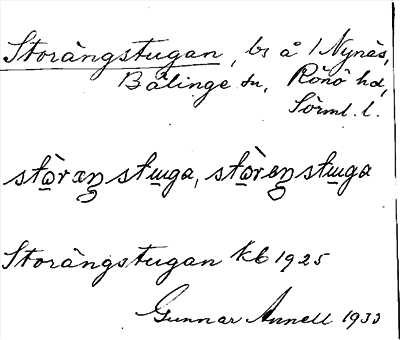 Storängstugan, bs å 1 Nynäs,
Bälinge sn, Rönö hd,
Sörml. l.
stὼræŋstuga, stὼrəŋstuga
Storängstugan kb 1925
Gunnar Annell 1933